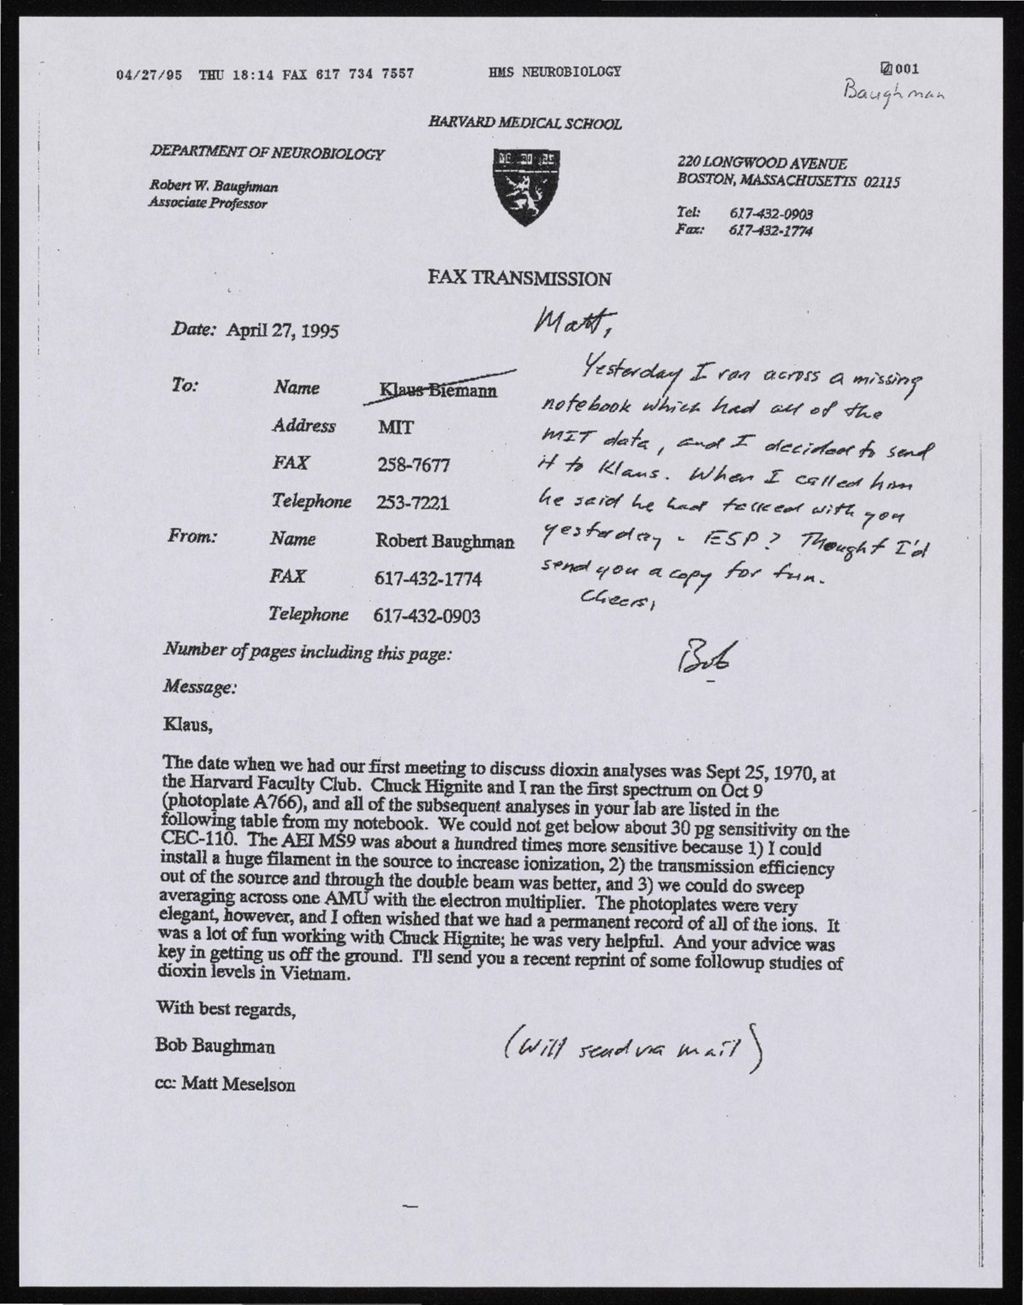 04/27/95 THU 18:14 FAX 617 734 7557 HMS NEUROBIOLOGY 001
Baughman
HARVARD MEDICAL SCHOOL
DEPARTMENT OF NEUROBIOLOGY
Robert W. Baughman
Associate Professor
VE RI TAS
220 LONGWOOD AVENUE
BOSTON, MASSACHUSETTS 02115
Tel: 617-432-0903
Fax: 617-432-1774
FAX TRANSMISSION
Date: April 27, 1995
To: Name Klaus Biemann
Address MIT
FAX 258-7677
Telephone 253-7221
From: Name Robert Baughman
FAX 617-432-1774
Telephone 617-432-0903
Matt,
Yesterday I ran across a missing
notebook which had all of the
MIT data, and I decided to send
it to Klaus. When I called him
he said he had talked with you
yesterday - ESP? Thought I'd
send you a copy for fun.
Cheers,
Bob
Number of pages including this page:
Message:
Klaus,
The date when we had our first meeting to discuss dioxin analyses was Sept 25, 1970, at
the Harvard Faculty Club. Chuck Hignite and I ran the first spectrum on Oct 9
(photoplate A766), and all of the subsequent analyses in your lab are listed in the
following table from my notebook. We could not get below about 30 pg sensitivity on the
CEC-110. The AEI MS9 was about a hundred times more sensitive because 1) I could
install a huge filament in the source to increase ionization, 2) the transmission efficiency
out of the source and through the double beam was better, and 3) we could do sweep
averaging across one AMU with the electron multiplier. The photoplates were very
elegant, however, and I often wished that we had a permanent record of all of the ions. It
was a lot of fun working with Chuck Hignite; he was very helpful. And your advice was
key in getting us off the ground. I'll send you a recent reprint of some followup studies of
dioxin levels in Vietnam.
With best regards,
Bob Baughman
(Will send via mail)
cc: Matt Meselson